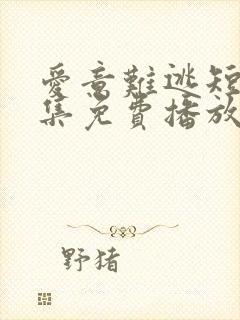 愛意難逃短
集免費播放
野猪